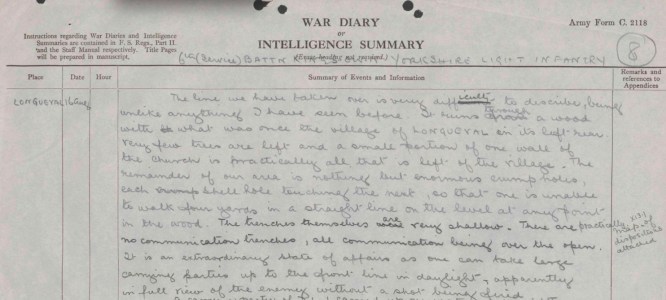 WAR DIARY
Army Form C. 2118
OR
INTELLIGENCE SUMMARY
Instructions regarding War Diaries and Intelligence
Summaries are contained in F. S. Regs., Part II.
and the Staff Manual respectively. Title Pages
will be prepared in manuscript.
(Erase heading not required.)
(Service) BATTN KING'S OWN YORKSHIRE LIGHT INFANTRY
8
Place
Date
Hour
Summary of Events and Information
Remarks and
references to
Appendices
LONGUEVAL
The line we have taken over is very difficult to describe, being
unlike anything I have seen before. It runs through a wood
with what was once the village of LONGUEVAL in its left rear.
Very few trees are left and a small portion of one wall of
the church is practically all that is left of the village. The
remainder of our area is nothing but enormous crump holes,
each shell hole touching the next, so that one is unable
to walk four yards in a straight line on the level at any point
in the wood. The trenches themselves are very shallow. There are practically
no communication trenches, all communication being over the open.
It is an extraordinary state of affairs as one can take large
carrying parties up to the front line in daylight, apparently
in full view of the enemy without a shot being fired
Map of
dispositions
attached